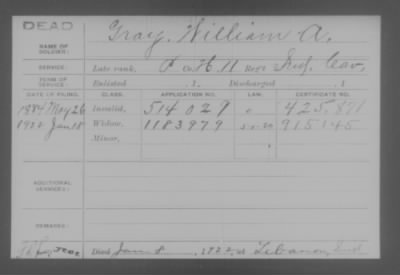 DEAD
NAME OF SOLDIER: Gray, William A.
SERVICE: Late rank, P Co. H 11 Reg't Ind. Cav,
TERM OF SERVICE: Enlisted , 1 Discharged , 1
DATE OF FILING. CLASS. APPLICATION NO. LAW. CERTIFICATE NO.
1884 May 26 Invalid, 514029 425,871
1922 Jan 18 Widow, 1183979 915145
Minor,
ADDITIONAL SERVICES:
REMARKS:
Died Jan 8 1922, at Lebanon, Ind